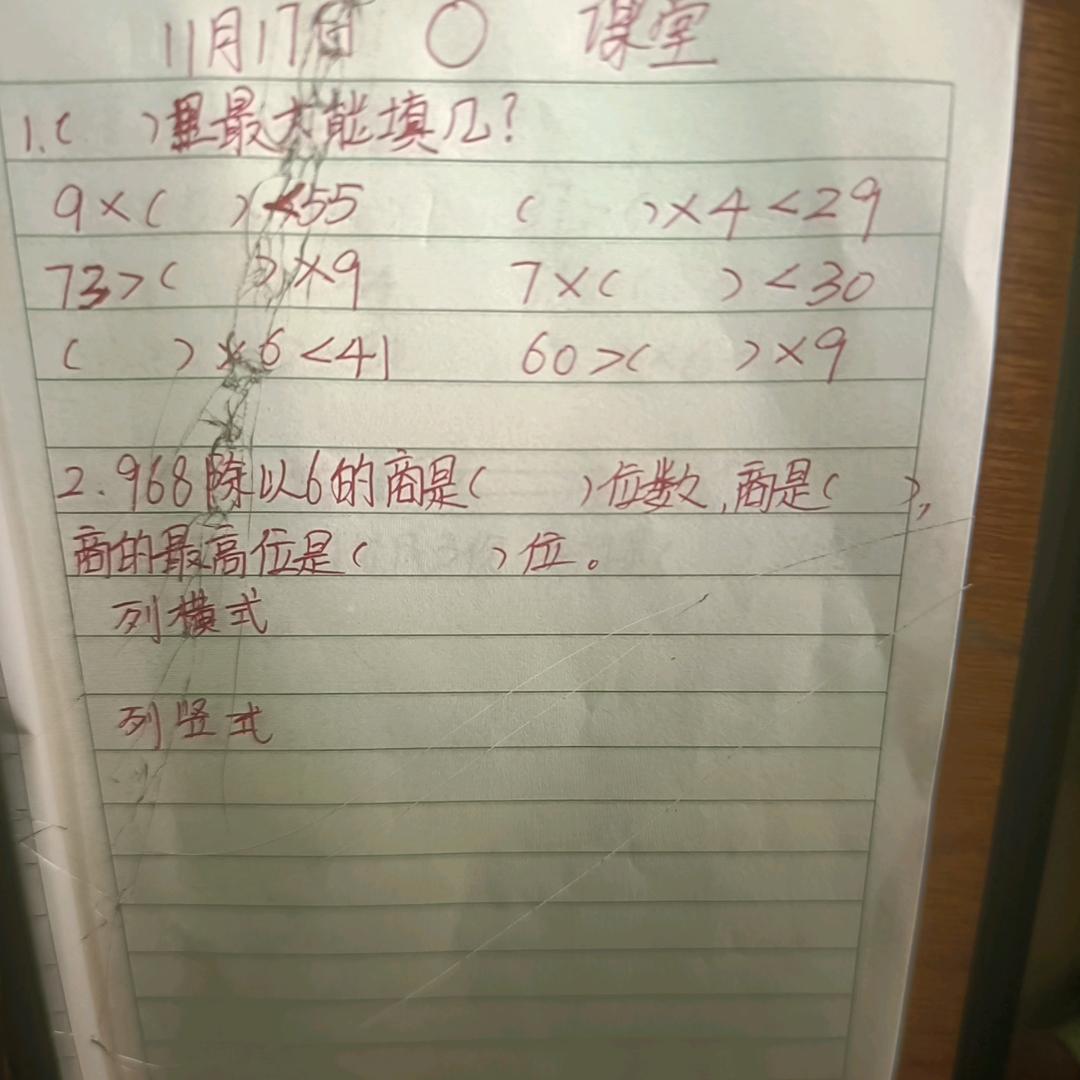 11月17日 ○ 课堂
1.( )里最大能填几?
9×( )<55 ( )×4<29
73>( )×9 7×( )<30
( )×6<41 60>( )×9
2.968除以6的商是( )位数,商是( ),
商的最高位是( )位。
列横式
列竖式